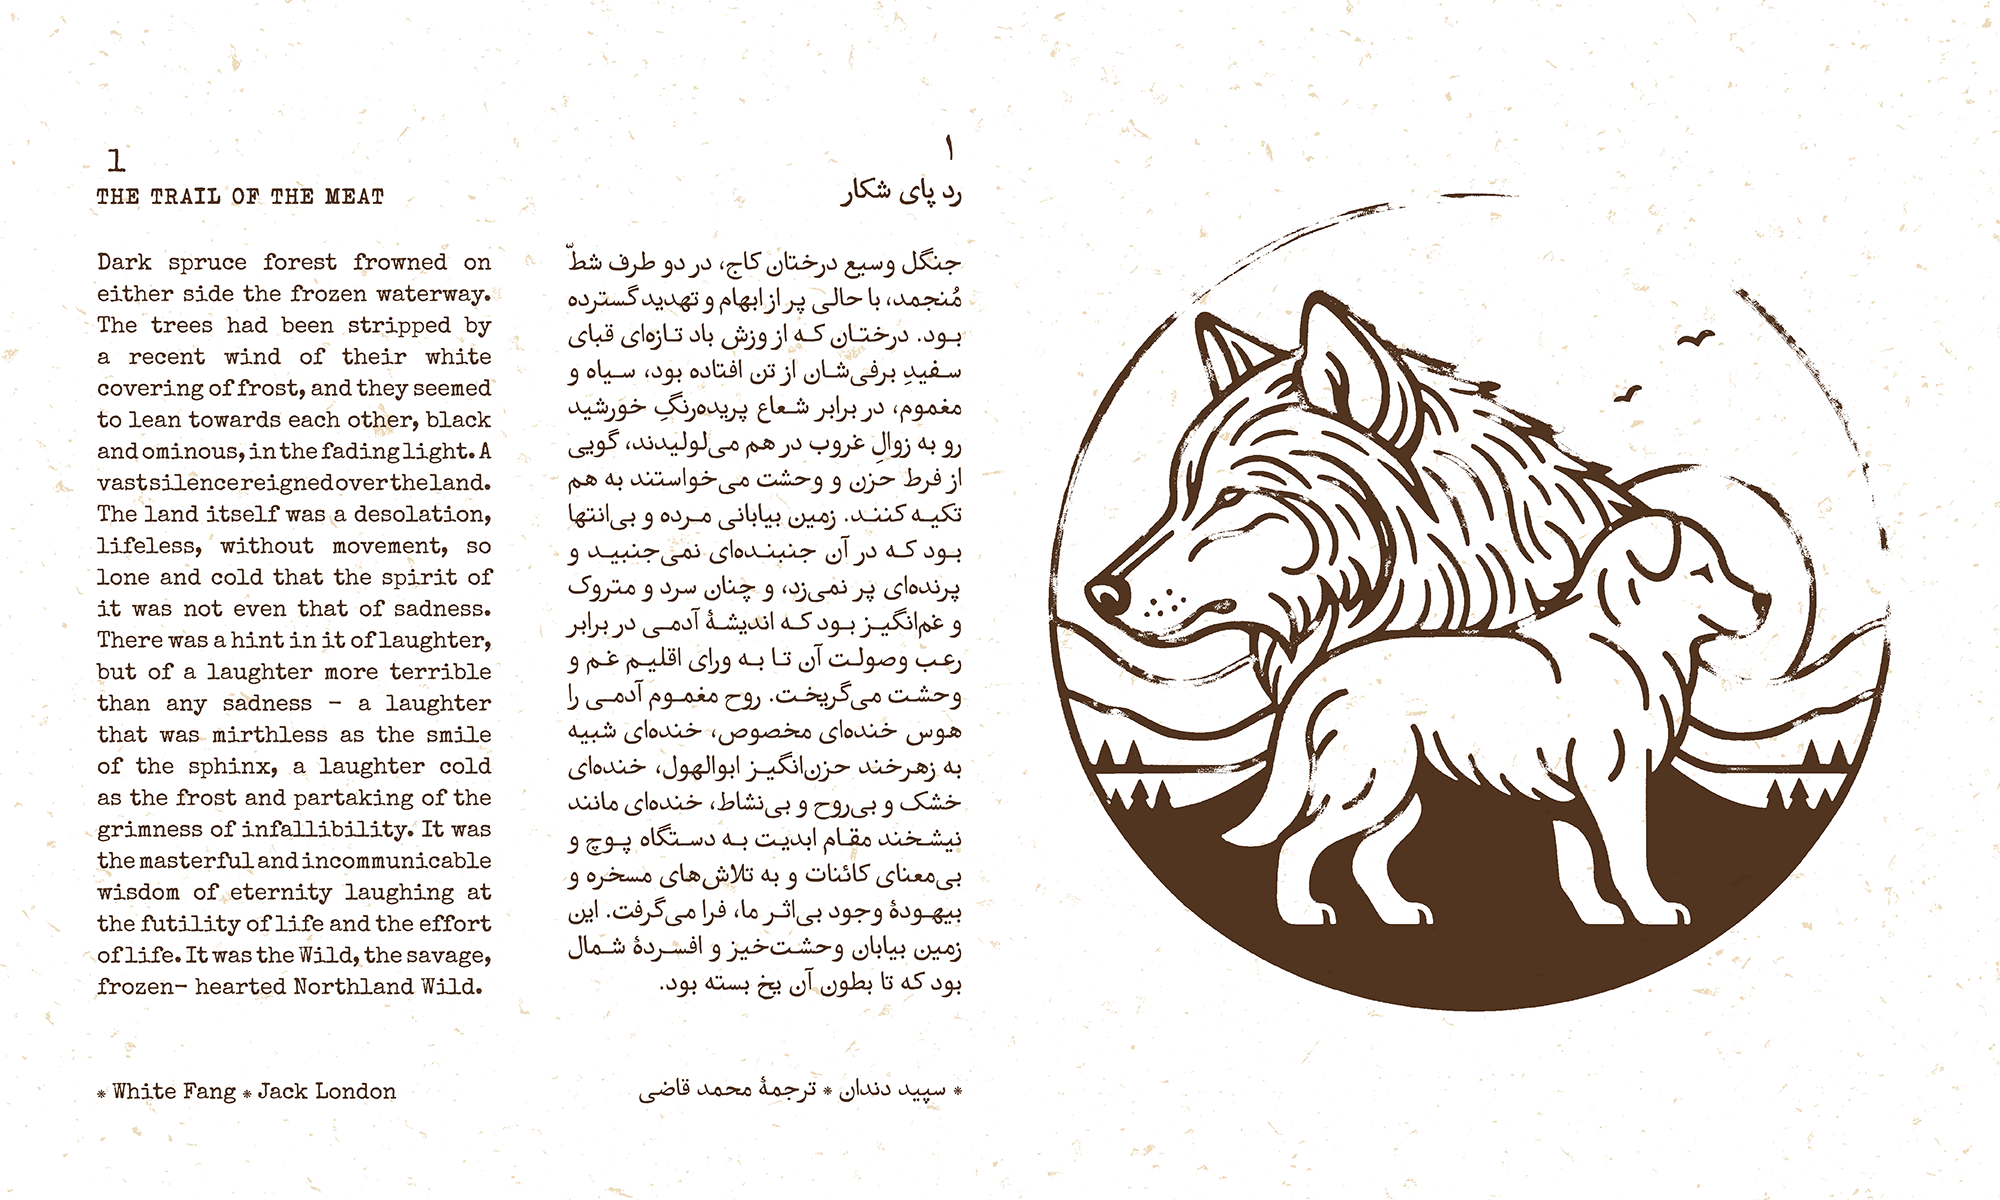 1
THE TRAIL OF THE MEAT
Dark spruce forest frowned on
either side the frozen waterway.
The trees had been stripped by
a recent wind of their white
covering of frost, and they seemed
to lean towards each other, black
and ominous, in the fading light. A
vast silence reigned over the land.
The land itself was a desolation,
lifeless, without movement, so
lone and cold that the spirit of
it was not even that of sadness.
There was a hint in it of laughter,
but of a laughter more terrible
than any sadness – a laughter
that was mirthless as the smile
of the sphinx, a laughter cold
as the frost and partaking of the
grimness of infallibility. It was
the masterful and incommunicable
wisdom of eternity laughing at
the futility of life and the effort
of life. It was the Wild, the savage,
frozen- hearted Northland Wild.
* White Fang * Jack London
۱
رد پای شکار
جنگل وسیع درختان کاج، در دو طرف شطّ
مُنجمد، با حالی پر از ابهام و تهدید گسترده
بود. درختان که از وزش باد تازه‌ای قبای
سفیدِ برفی‌شان از تن افتاده بود، سیاه و
مغموم، در برابر شعاع پریده‌رنگِ خورشید
رو به زوالِ غروب در هم می‌لولیدند، گویی
از فرط حزن و وحشت می‌خواستند به هم
تکیه کنند. زمین بیابانی مرده و بی‌انتها
بود که در آن جنبنده‌ای نمی‌جنبید و
پرنده‌ای پر نمی‌زد، و چنان سرد و متروک
و غم‌انگیز بود که اندیشهٔ آدمی در برابر
رعب وصولت آن تا به ورای اقلیم غم و
وحشت می‌گریخت. روح مغموم آدمی را
هوس خنده‌ای مخصوص، خنده‌ای شبیه
به زهرخند حزن‌انگیز ابوالهول، خنده‌ای
خشک و بی‌روح و بی‌نشاط، خنده‌ای مانند
نیشخند مقام ابدیت به دستگاه پوچ و
بی‌معنای کائنات و به تلاش‌های مسخره و
بیهودهٔ وجود بی‌اثر ما، فرا می‌گرفت. این
زمین بیابان وحشت‌خیز و افسردهٔ شمال
بود که تا بطون آن یخ بسته بود.
* سپید دندان * ترجمهٔ محمد قاضی